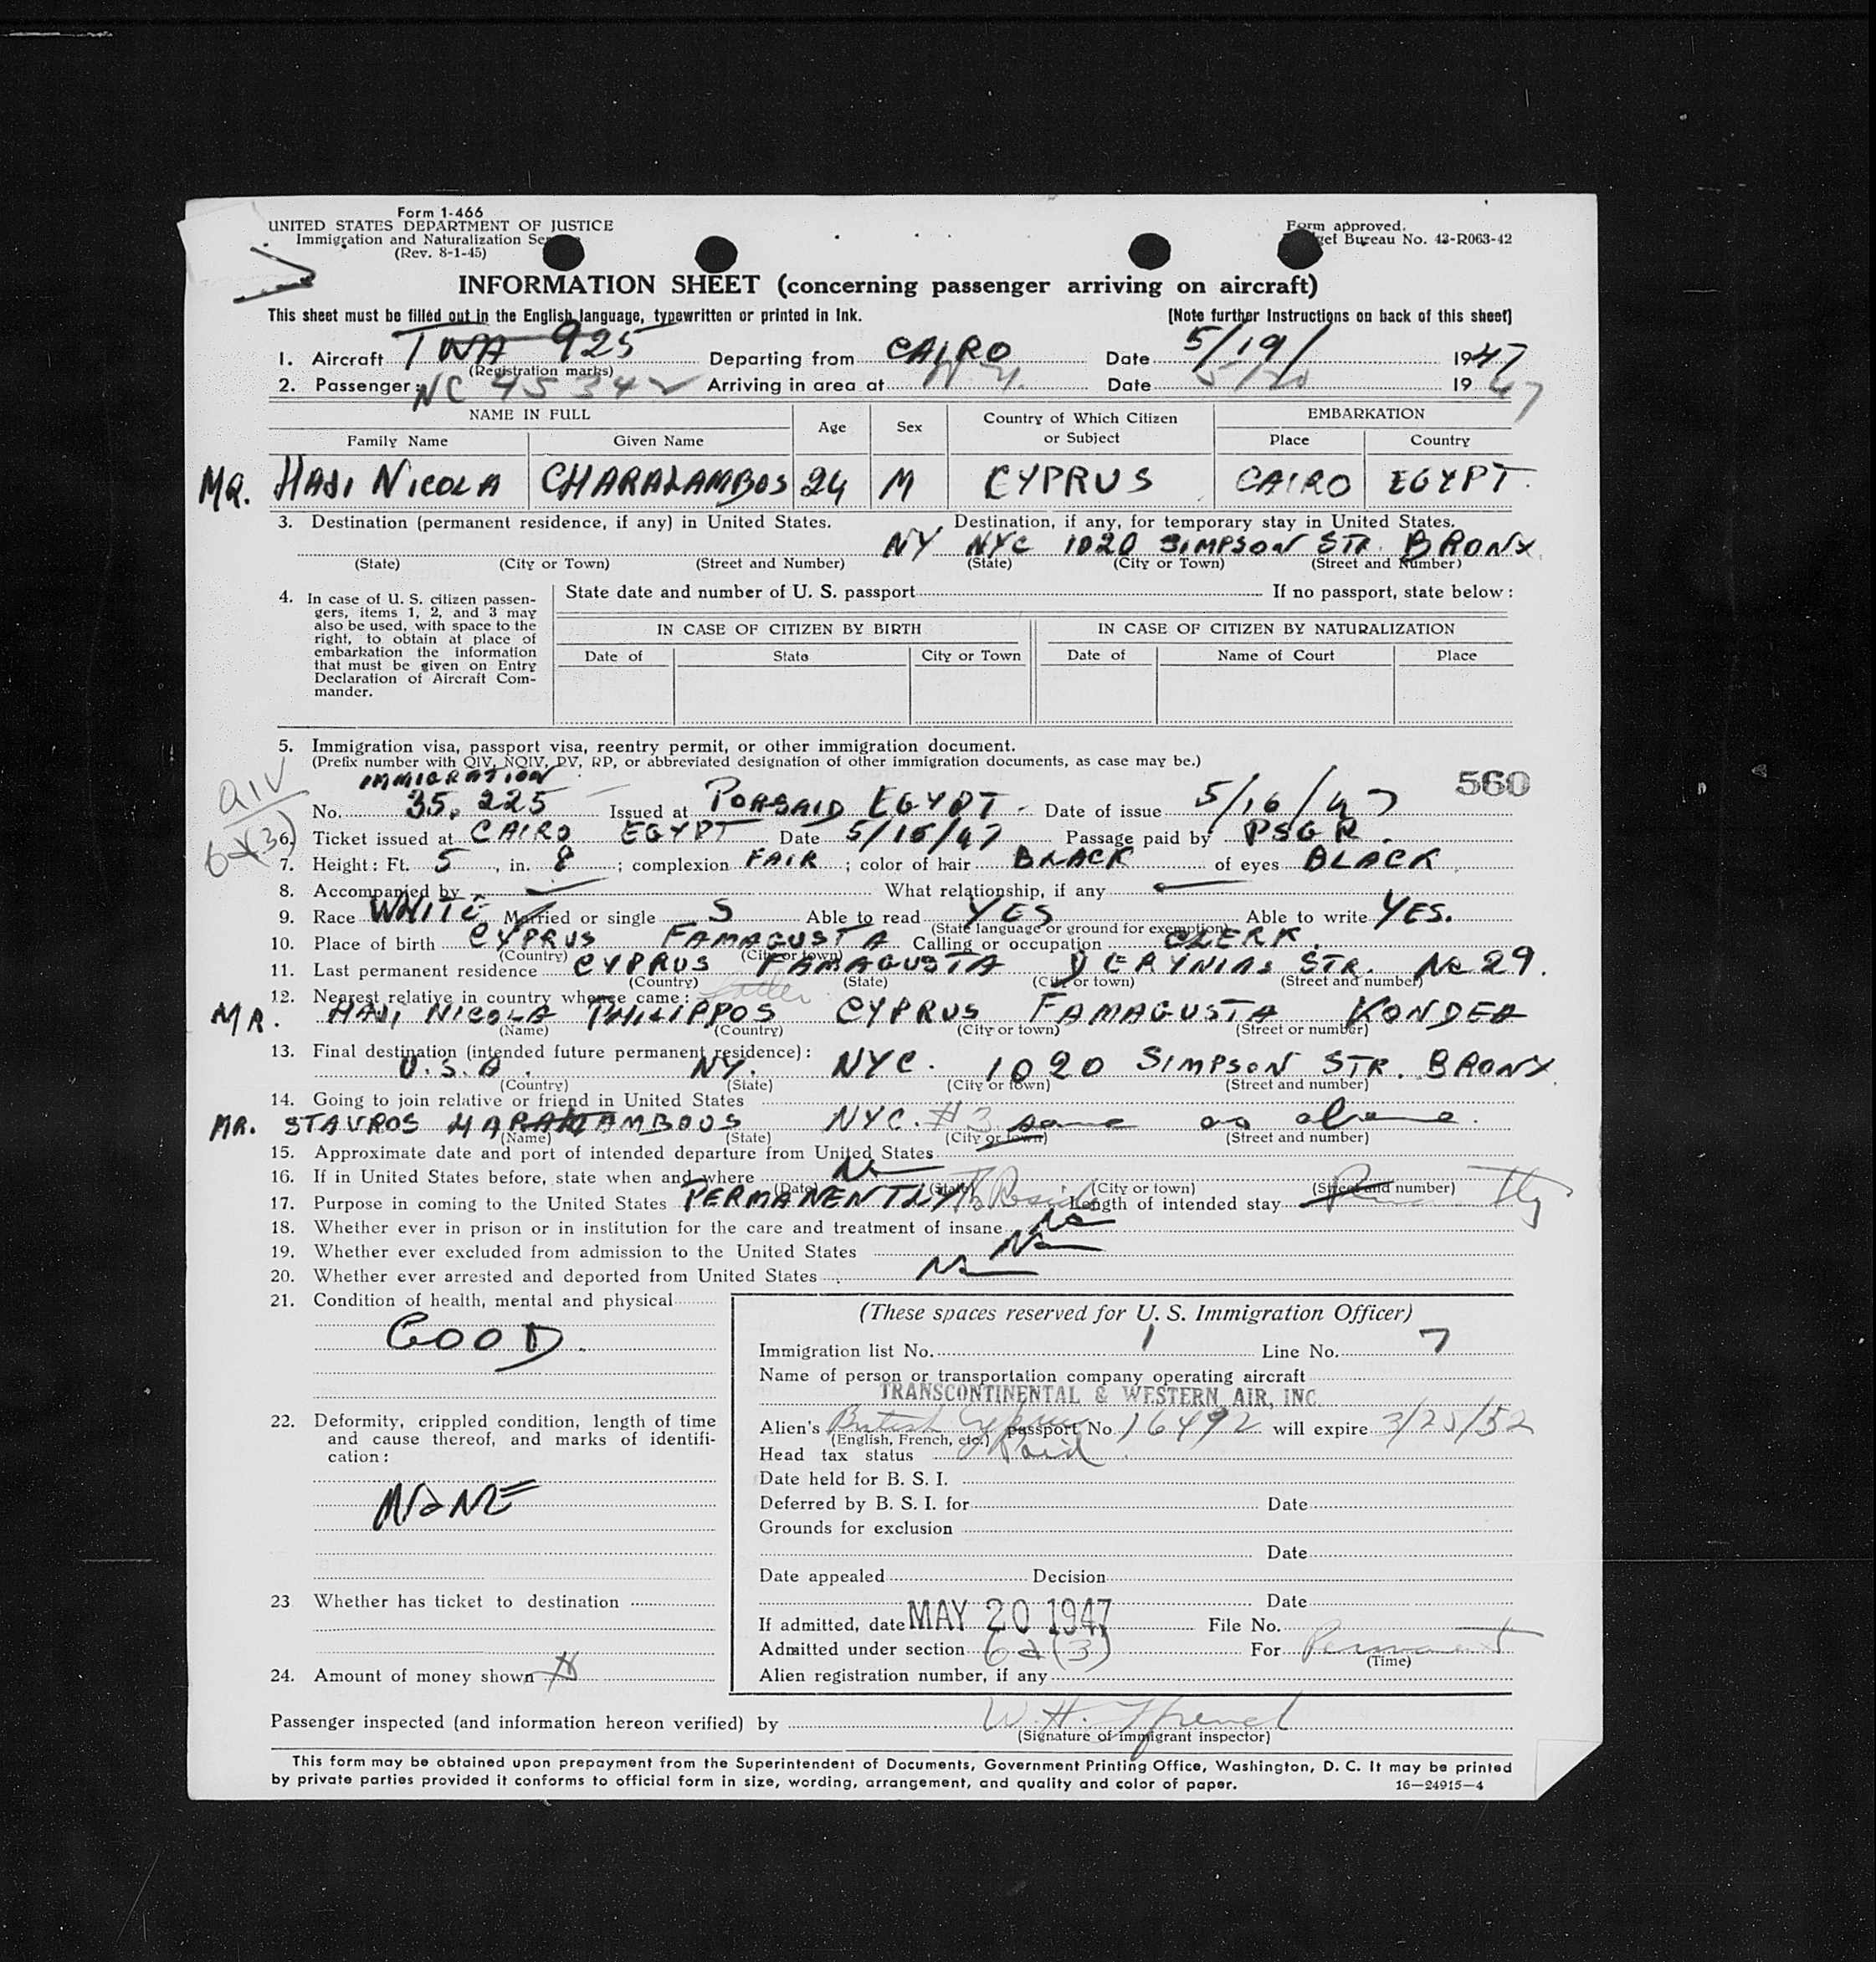 Form 1-466
UNITED STATES DEPARTMENT OF JUSTICE
Immigration and Naturalization Se
(Rev. 8-1-45)
Form approved.
get Bureau No. 43-R063-42
INFORMATION SHEET (concerning passenger arriving on aircraft)
This sheet must be filled out in the English language, typewritten or printed in Ink. [Note further Instructions on back of this sheet]
1. Aircraft TWA 925 Departing from CAIRO Date 5/19/ 1947
(Registration marks)
2. Passenger: NC 45342 Arriving in area at N.Y. Date 5/20 1947
NAME IN FULL Age Sex Country of Which Citizen or Subject EMBARKATION
Family Name Given Name Place Country
MR. HAJI NICOLA CHARALAMBOS 24 M CYPRUS CAIRO EGYPT.
3. Destination (permanent residence, if any) in United States. Destination, if any, for temporary stay in United States.
NY NYC 1020 SIMPSON STR. BRONX
(State) (City or Town) (Street and Number) (State) (City or Town) (Street and Number)
4. In case of U. S. citizen passen-
gers, items 1, 2, and 3 may
also be used, with space to the
right, to obtain at place of
embarkation the information
that must be given on Entry
Declaration of Aircraft Com-
mander.
State date and number of U. S. passport If no passport, state below:
IN CASE OF CITIZEN BY BIRTH IN CASE OF CITIZEN BY NATURALIZATION
Date of State City or Town Date of Name of Court Place
5. Immigration visa, passport visa, reentry permit, or other immigration document.
(Prefix number with QIV, NQIV, PV, RP, or abbreviated designation of other immigration documents, as case may be.)
QIV
6a(3)
IMMIGRATION
560
No. 35.225 Issued at PORSAID EGYPT. Date of issue 5/16/47
6. Ticket issued at CAIRO EGYPT Date 5/15/47 Passage paid by PSGR.
7. Height: Ft. 5, in. 8; complexion FAIR; color of hair BLACK of eyes BLACK
8. Accompanied by What relationship, if any
9. Race WHITE Married or single S Able to read YES Able to write YES.
(State language or ground for exemption)
10. Place of birth CYPRUS FAMAGUSTA Calling or occupation CLERK.
(Country) (City or town)
11. Last permanent residence CYPRUS FAMAGUSTA DERYNIAS STR. No 29.
(Country) (State) (City or town) (Street and number)
12. Nearest relative in country whence came: father
MR. HAJI NICOLA PHILIPPOS CYPRUS FAMAGUSTA KONDEA
(Name) (Country) (City or town) (Street or number)
13. Final destination (intended future permanent residence):
U.S.A. NY. NYC. 1020 SIMPSON STR. BRONX
(Country) (State) (City or town) (Street and number)
14. Going to join relative or friend in United States
MR. STAVROS HARALAMBOUS NYC. #3 same as above.
(Name) (State) (City or town) (Street and number)
15. Approximate date and port of intended departure from United States
16. If in United States before, state when and where No
(Date) (State) (City or town) (Street and number)
17. Purpose in coming to the United States PERMANENTLY To Reside Length of intended stay
18. Whether ever in prison or in institution for the care and treatment of insane No
19. Whether ever excluded from admission to the United States No
20. Whether ever arrested and deported from United States No
21. Condition of health, mental and physical
GOOD.
22. Deformity, crippled condition, length of time
and cause thereof, and marks of identifi-
cation:
NONE
23 Whether has ticket to destination
24. Amount of money shown
(These spaces reserved for U. S. Immigration Officer)
Immigration list No. 1 Line No. 7
Name of person or transportation company operating aircraft
TRANSCONTINENTAL & WESTERN AIR, INC.
Alien's British Cyprus passport No. 16492 will expire 3/25/52
(English, French, etc.)
Head tax status Paid
Date held for B. S. I.
Deferred by B. S. I. for Date
Grounds for exclusion
Date
Date appealed Decision
Date
If admitted, date MAY 20 1947 File No.
Admitted under section 6a(3) For Permanent
(Time)
Alien registration number, if any
Passenger inspected (and information hereon verified) by W. H.
(Signature of immigrant inspector)
This form may be obtained upon prepayment from the Superintendent of Documents, Government Printing Office, Washington, D. C. It may be printed
by private parties provided it conforms to official form in size, wording, arrangement, and quality and color of paper. 16—24915-4